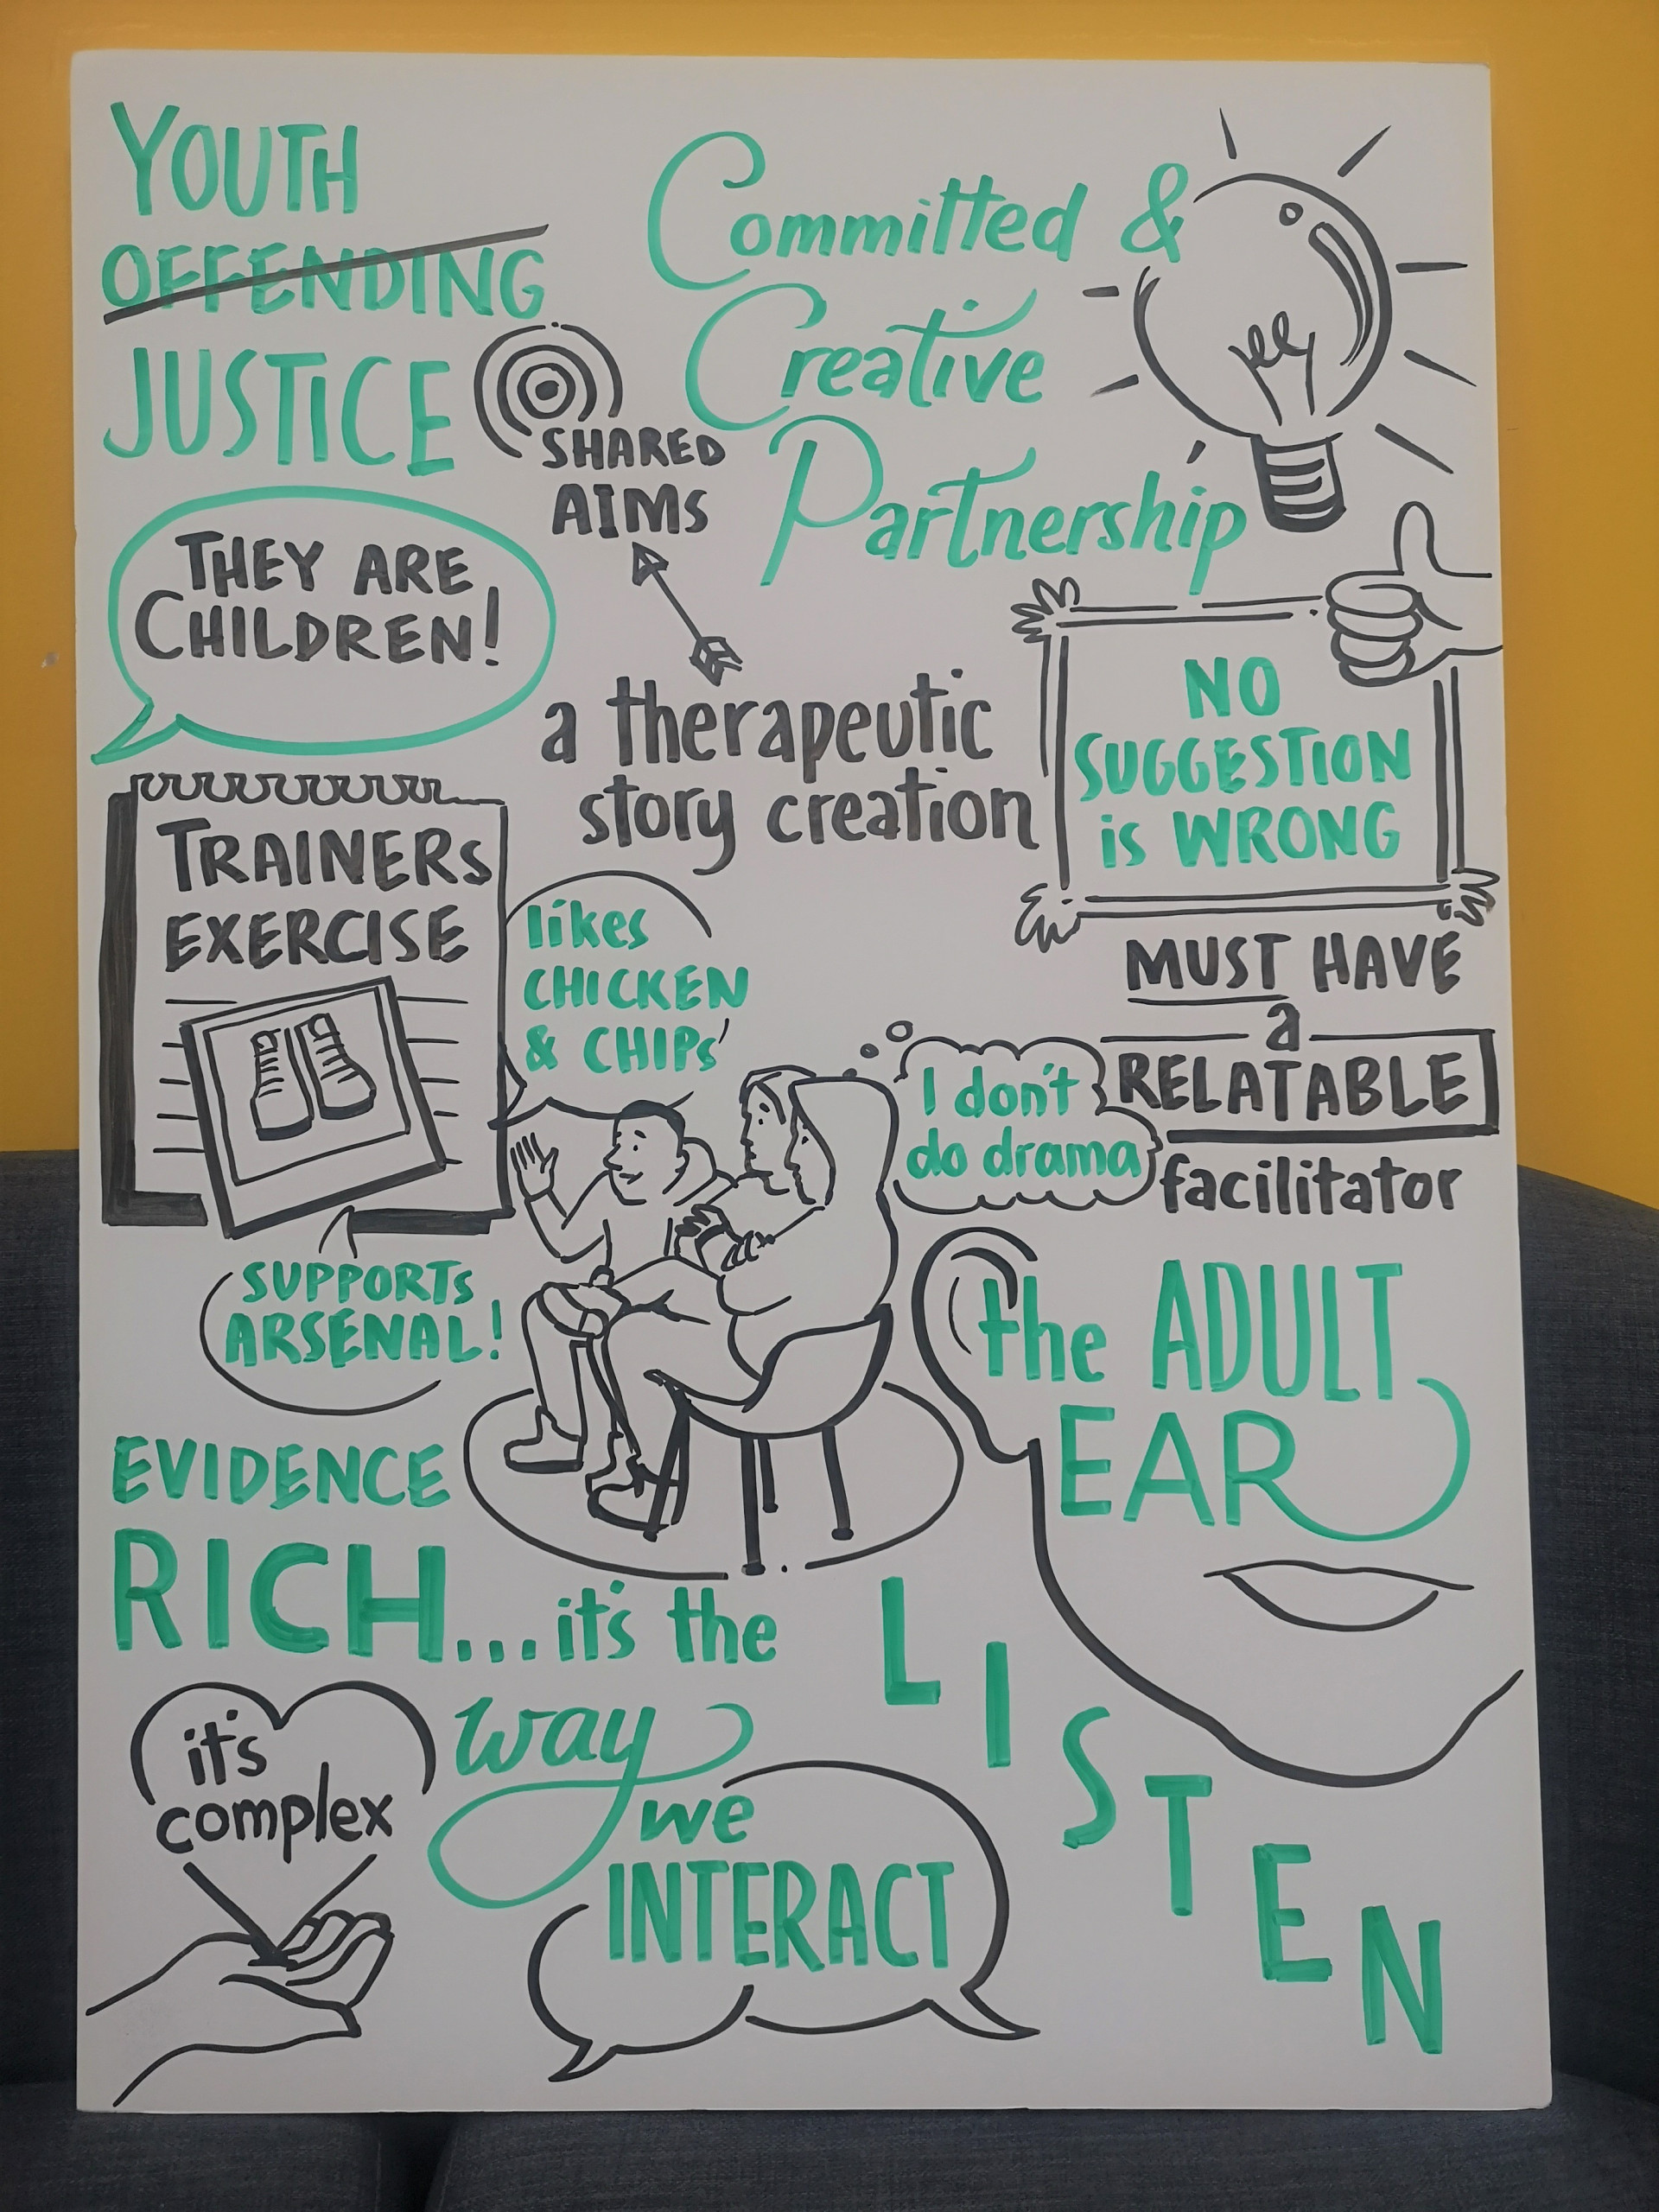 YOUTH
OFFENDING
JUSTICE
SHARED
AIMS
Committed &
Creative
Partnership
THEY ARE
CHILDREN!
a therapeutic
story creation
NO
SUGGESTION
is WRONG
TRAINERS
EXERCISE
likes
CHICKEN
& CHIPS
SUPPORTS
ARSENAL!
I don't
do drama
MUST HAVE
a
RELATABLE
facilitator
the ADULT
EAR
LISTEN
EVIDENCE
RICH...it's the
way
we
INTERACT
it's
complex